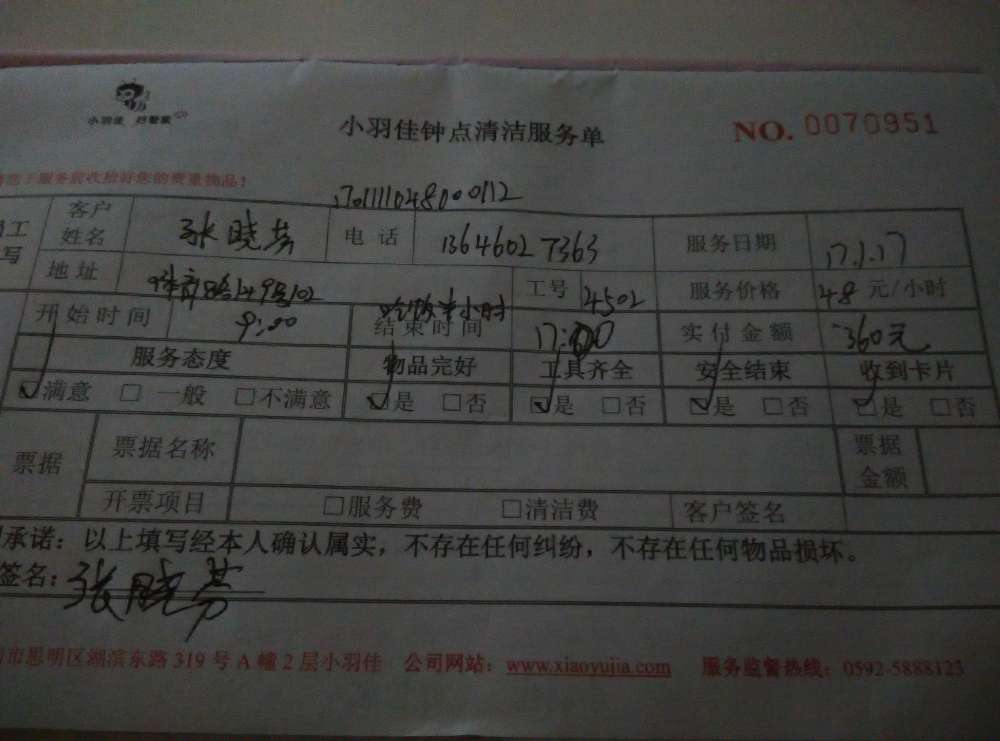 小羽佳 好管家
小羽佳钟点清洁服务单
NO. 0070951
于服务前收拾好您的贵重物品！
1701111048000112
工 客户姓名 张晓芳 电话 13646027363 服务日期 17.1.17
写 地址 体育路149号102 工号 4502 服务价格 48 元/小时
吃饭半小时
开始时间 9:00 结束时间 17:00 实付金额 360元
服务态度 物品完好 工具齐全 安全结束 收到卡片
☑满意 □ 一般 □不满意 ☑是 □否 ☑是 □否 ☑是 □否 ☑是 □否
票据 票据名称 票据金额
开票项目 □服务费 □清洁费 客户签名
承诺：以上填写经本人确认属实，不存在任何纠纷，不存在任何物品损坏。
签名：张晓芳
市思明区湖滨东路 319 号 A 幢 2 层小羽佳 公司网站：www.xiaoyujia.com 服务监督热线：0592-5888123